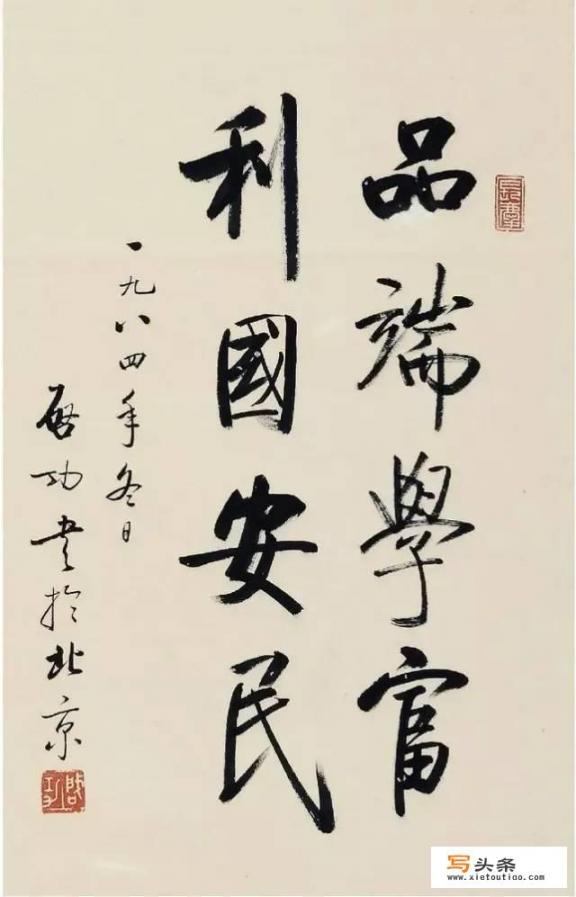 品端學富
利國安民
一九八四年冬日
啓功書於北京
啓功
写头条
www.xietoutiao.com